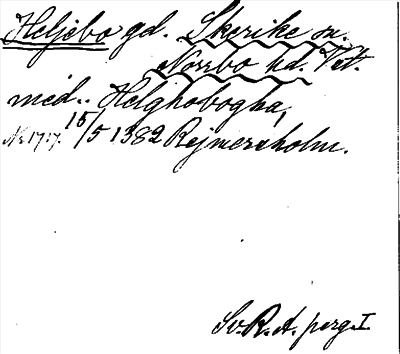 Heljebo gd. Skerike sn.
Norrbo hd. Vstl.
med. Helghobogha,
Nr 1717. 15/5 1382 Rejmersholm.
Sv. R. A. perg. I